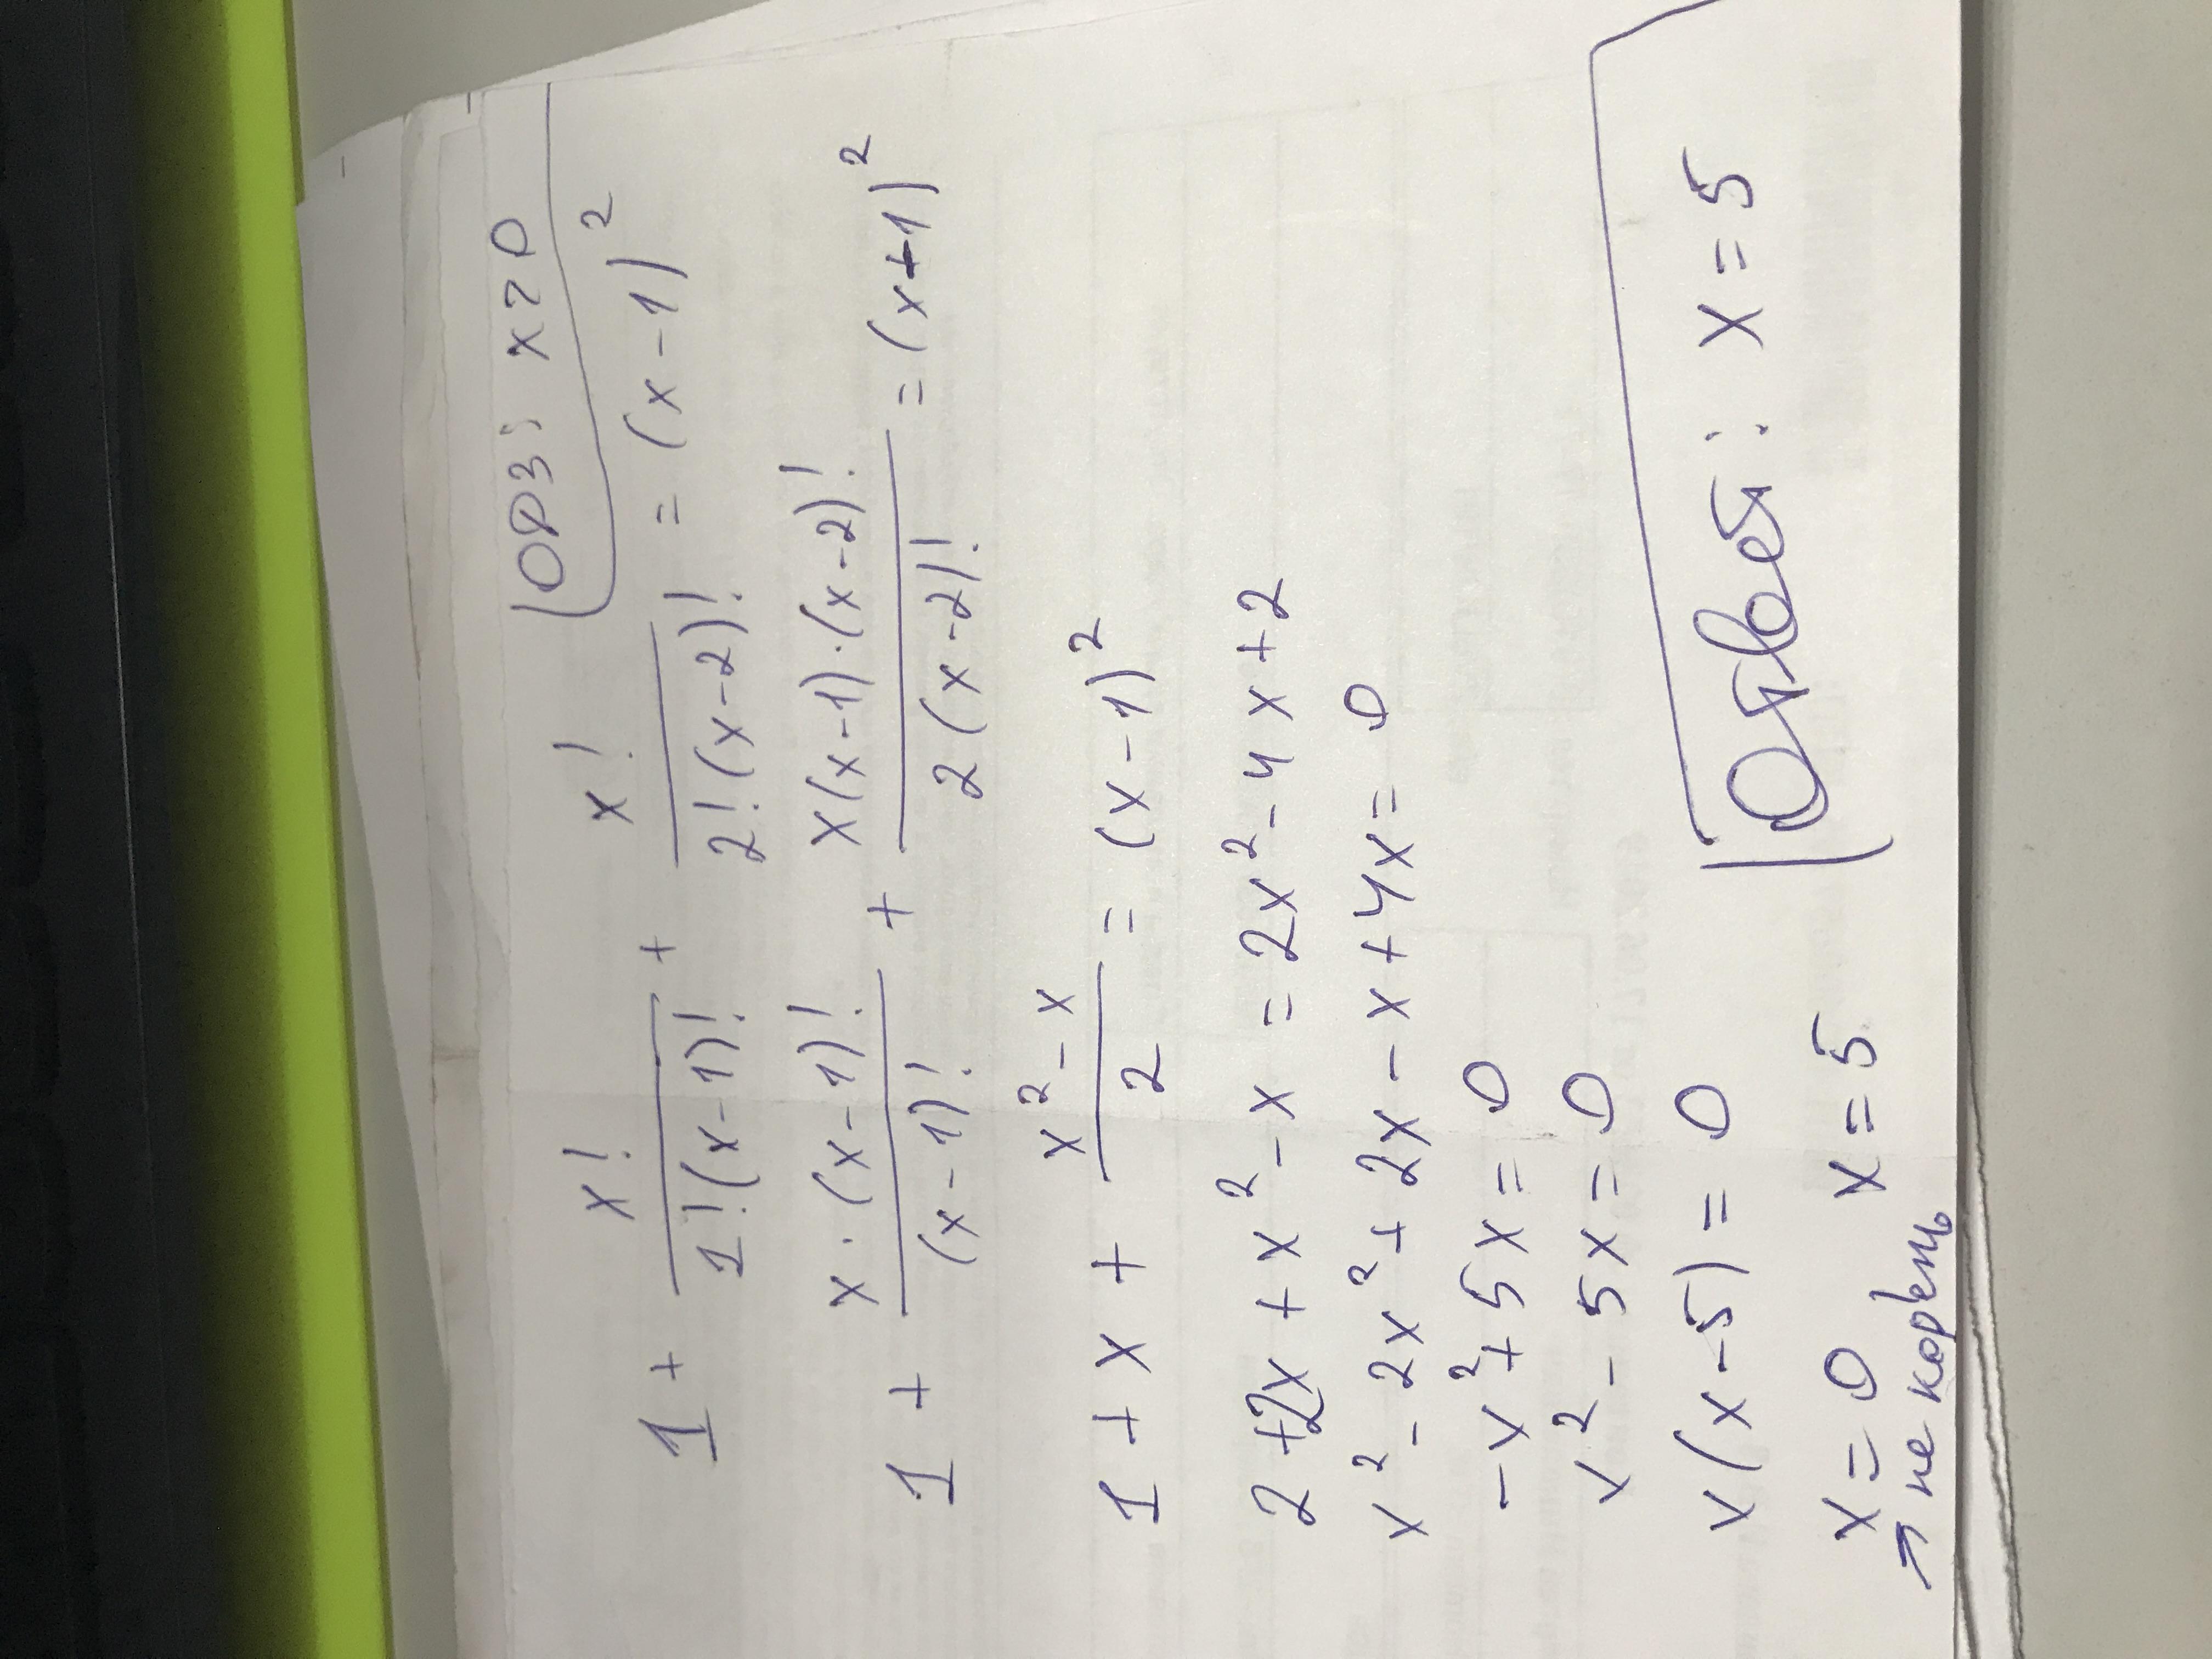 ОРЗ: x≥0
1 + x!/(1!(x-1)!) + x!/(2!(x-2)!) = (x-1)²
1 + x·(x-1)!/(x-1)! + x(x-1)·(x-2)!/(2(x-2)!) = (x+1)²
1 + x + (x²-x)/2 = (x-1)²
2+2x+x²-x = 2x²-4x+2
x²-2x²+2x-x+4x=0
-x²+5x=0
x²-5x=0
x(x-5)=0
x=0 x=5
→ не корень
Ответ: x=5